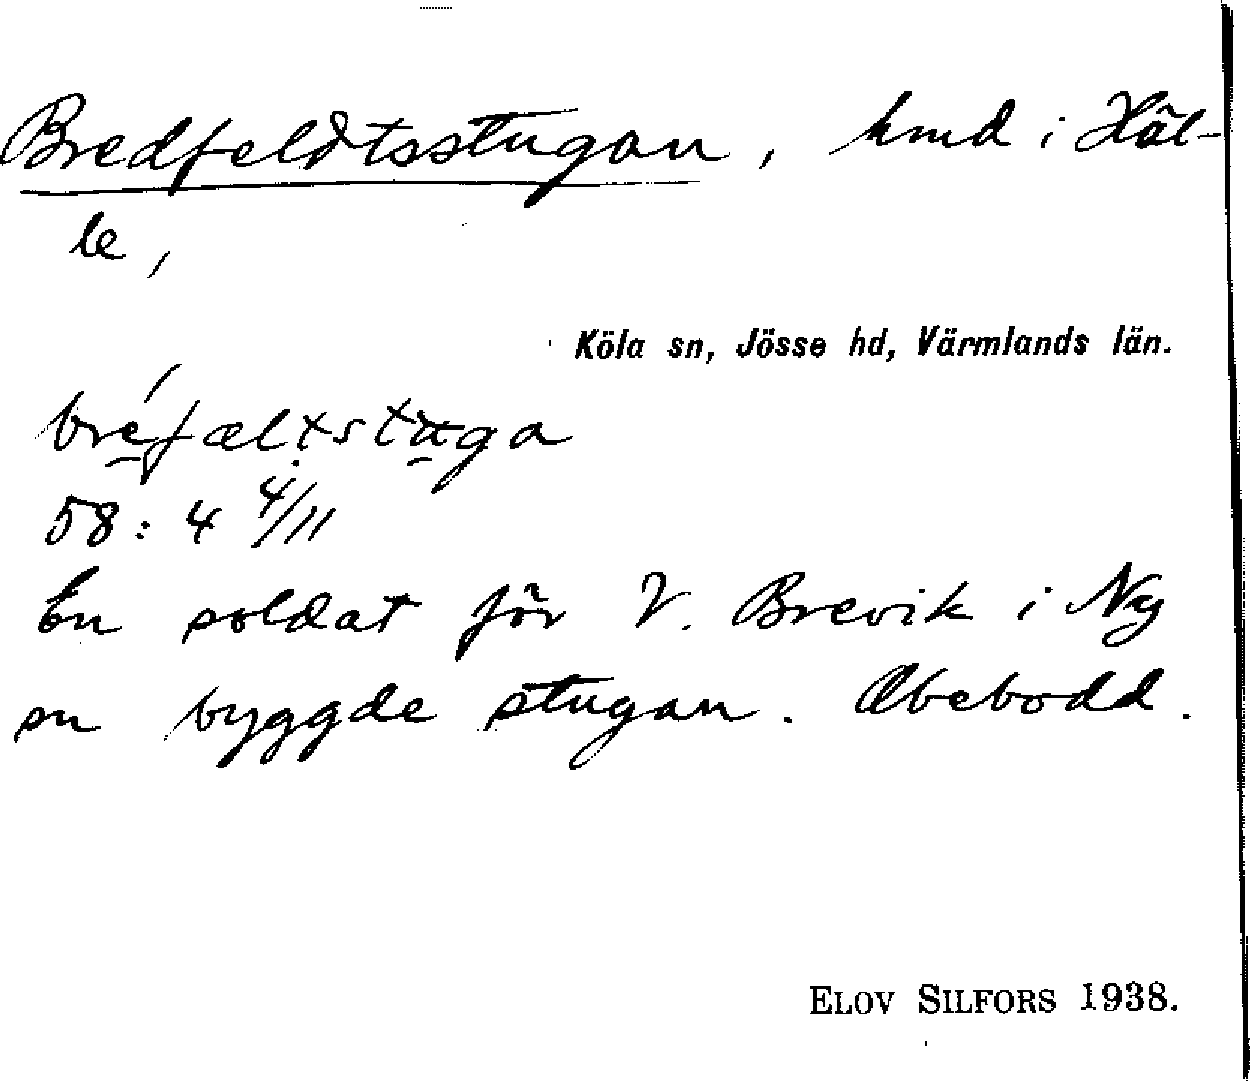 Bredfeldtsstugan, hmd i Häl-
le,
Köla sn, Jösse hd, Värmlands län.
bre̱´fælt̩stu̱ga
58:4 4/11
En soldat för V. Brevik i Ny
sn byggde stugan. Obebodd.
ELOV SILFORS 1938.